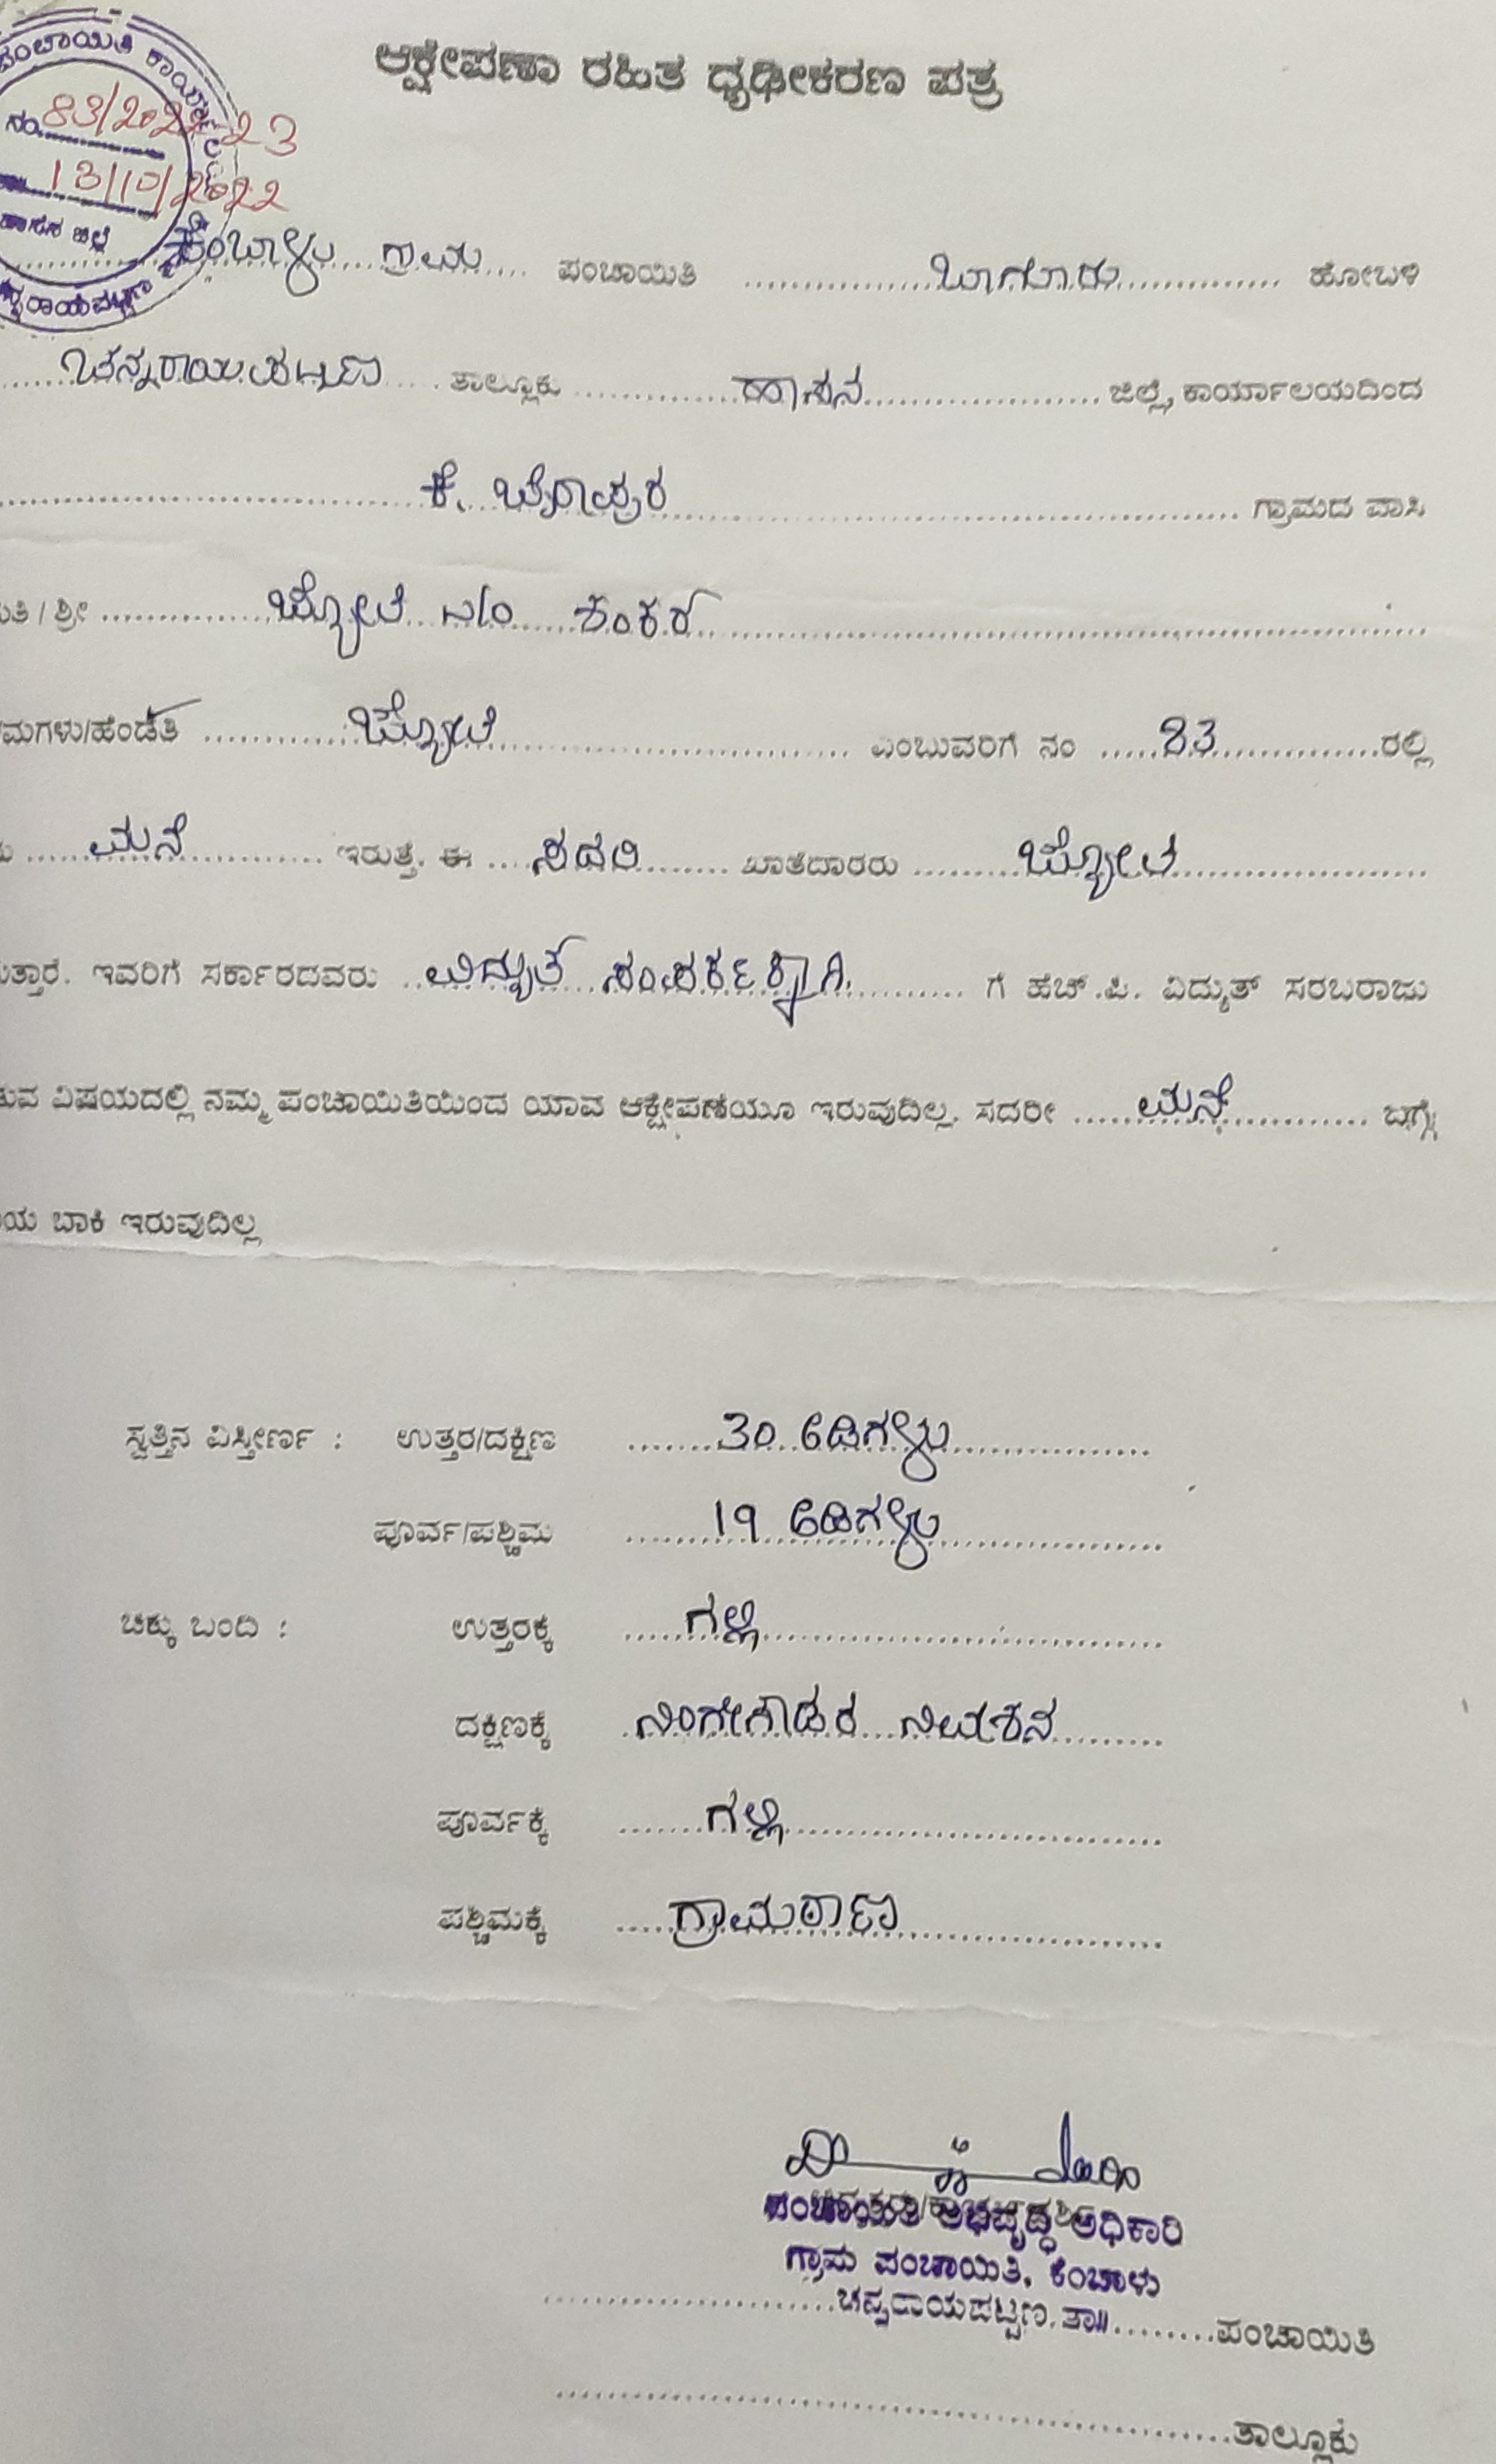 ಆಕ್ಷೇಪಣಾ ರಹಿತ ಧೃಢೀಕರಣ ಪತ್ರ
ಪಂಚಾಯಿತಿ ಕಾರ್ಯಾ
ನಂ. 83/2022-23
13/10/2022
ಹಾಸನ ಜಿಲ್ಲೆ
ಕೆಂಬಾಳು ಗ್ರಾಮ ಪಂಚಾಯಿತಿ ಬಾಗೂರು ಹೋಬಳಿ
ಚನ್ನರಾಯಪಟ್ಟಣ ತಾಲ್ಲೂಕು ಹಾಸನ ಜಿಲ್ಲೆ, ಕಾರ್ಯಾಲಯದಿಂದ
ಕೆ. ಬೈರಾಪುರ ಗ್ರಾಮದ ವಾಸಿ
ಮತಿ / ಶ್ರೀ ಜ್ಯೋತಿ ಶಂಕರ
/ಮಗಳು/ಹೆಂಡತಿ ಜ್ಯೋತಿ ಎಂಬುವರಿಗೆ ನಂ 83 ರಲ್ಲಿ
ಮನೆ ಇರುತ್ತೆ. ಈ ಸದರಿ ಖಾತೆದಾರರು ಜ್ಯೋತಿ
ತ್ತಾರೆ. ಇವರಿಗೆ ಸರ್ಕಾರದವರು ವಿದ್ಯುತ್ ಸಂಪರ್ಕಕ್ಕಾಗಿ ಗೆ ಹೆಚ್.ಪಿ. ವಿದ್ಯುತ್ ಸರಬರಾಜು
ಡುವ ವಿಷಯದಲ್ಲಿ ನಮ್ಮ ಪಂಚಾಯಿತಿಯಿಂದ ಯಾವ ಆಕ್ಷೇಪಣೆಯೂ ಇರುವುದಿಲ್ಲ. ಸದರೀ ಮನೆ ಬಗ್ಗೆ
ಯ ಬಾಕಿ ಇರುವುದಿಲ್ಲ
ಸ್ವತ್ತಿನ ವಿಸ್ತೀರ್ಣ : ಉತ್ತರ/ದಕ್ಷಿಣ 30 ಅಡಿಗಳು
ಪೂರ್ವ/ಪಶ್ಚಿಮ 19 ಅಡಿಗಳು
ಚಕ್ಕು ಬಂದಿ : ಉತ್ತರಕ್ಕೆ ಗಲ್ಲಿ
ದಕ್ಷಿಣಕ್ಕೆ ನಿಂಗೇಗೌಡರ ನಿವೇಶನ
ಪೂರ್ವಕ್ಕೆ ಗಲ್ಲಿ
ಪಶ್ಚಿಮಕ್ಕೆ ಗ್ರಾಮಠಾಣ
ಪಂಚಾಯಿತಿ ಅಭಿವೃದ್ಧಿ ಅಧಿಕಾರಿ
ಗ್ರಾಮ ಪಂಚಾಯಿತಿ, ಕೆಂಬಾಳು
ಚನ್ನರಾಯಪಟ್ಟಣ. ತಾ॥ ಪಂಚಾಯಿತಿ
ತಾಲ್ಲೂಕು